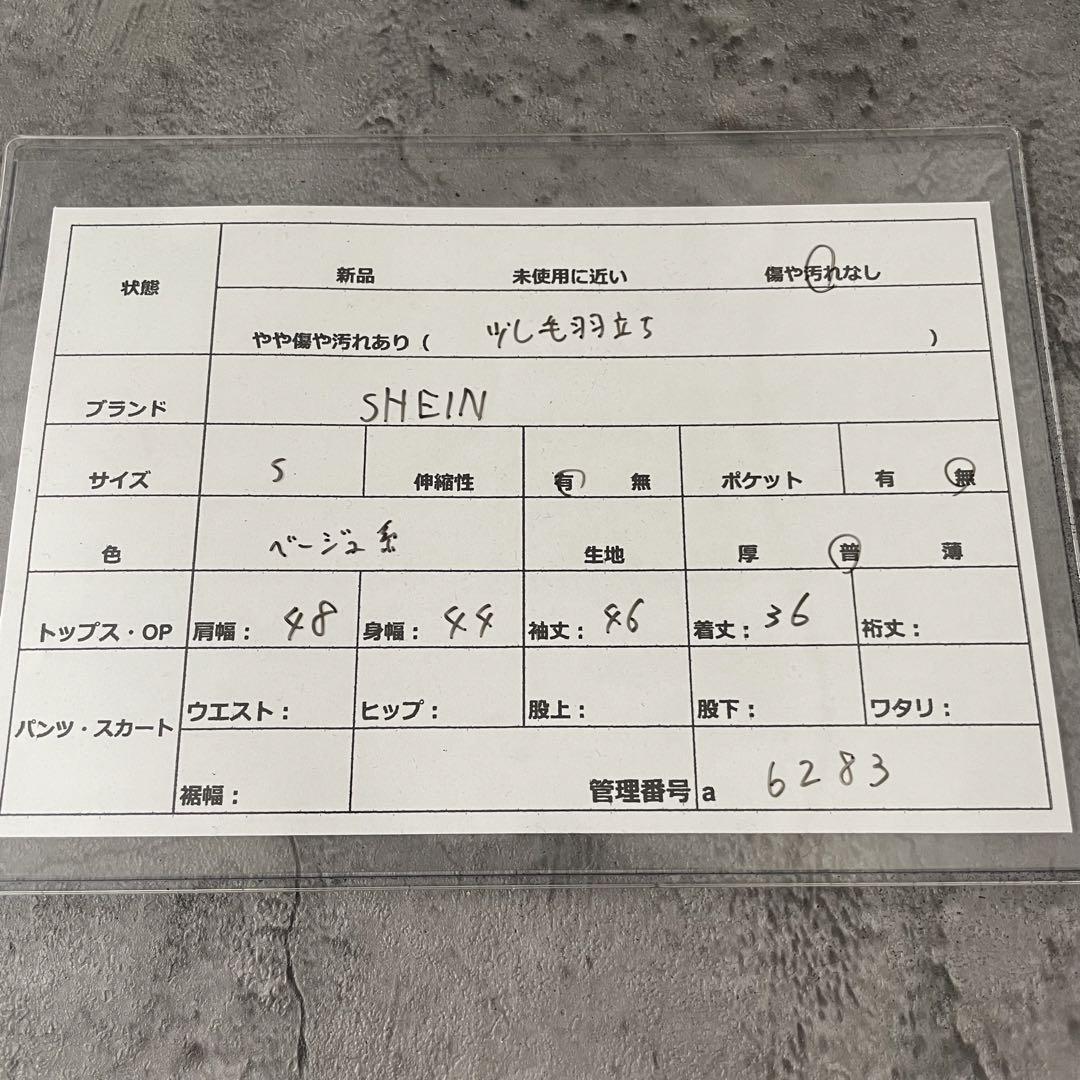 状態 新品 未使用に近い 傷や汚れなし
やや傷や汚れあり ( 少し毛羽立ち )
ブランド SHEIN
サイズ S 伸縮性 有 無 ポケット 有 無
色 ベージュ系 生地 厚 普 薄
トップス・OP 肩幅: 48 身幅: 44 袖丈: 46 着丈: 36 裄丈:
パンツ・スカート ウエスト: ヒップ: 股上: 股下: ワタリ:
裾幅: 管理番号 a 6283